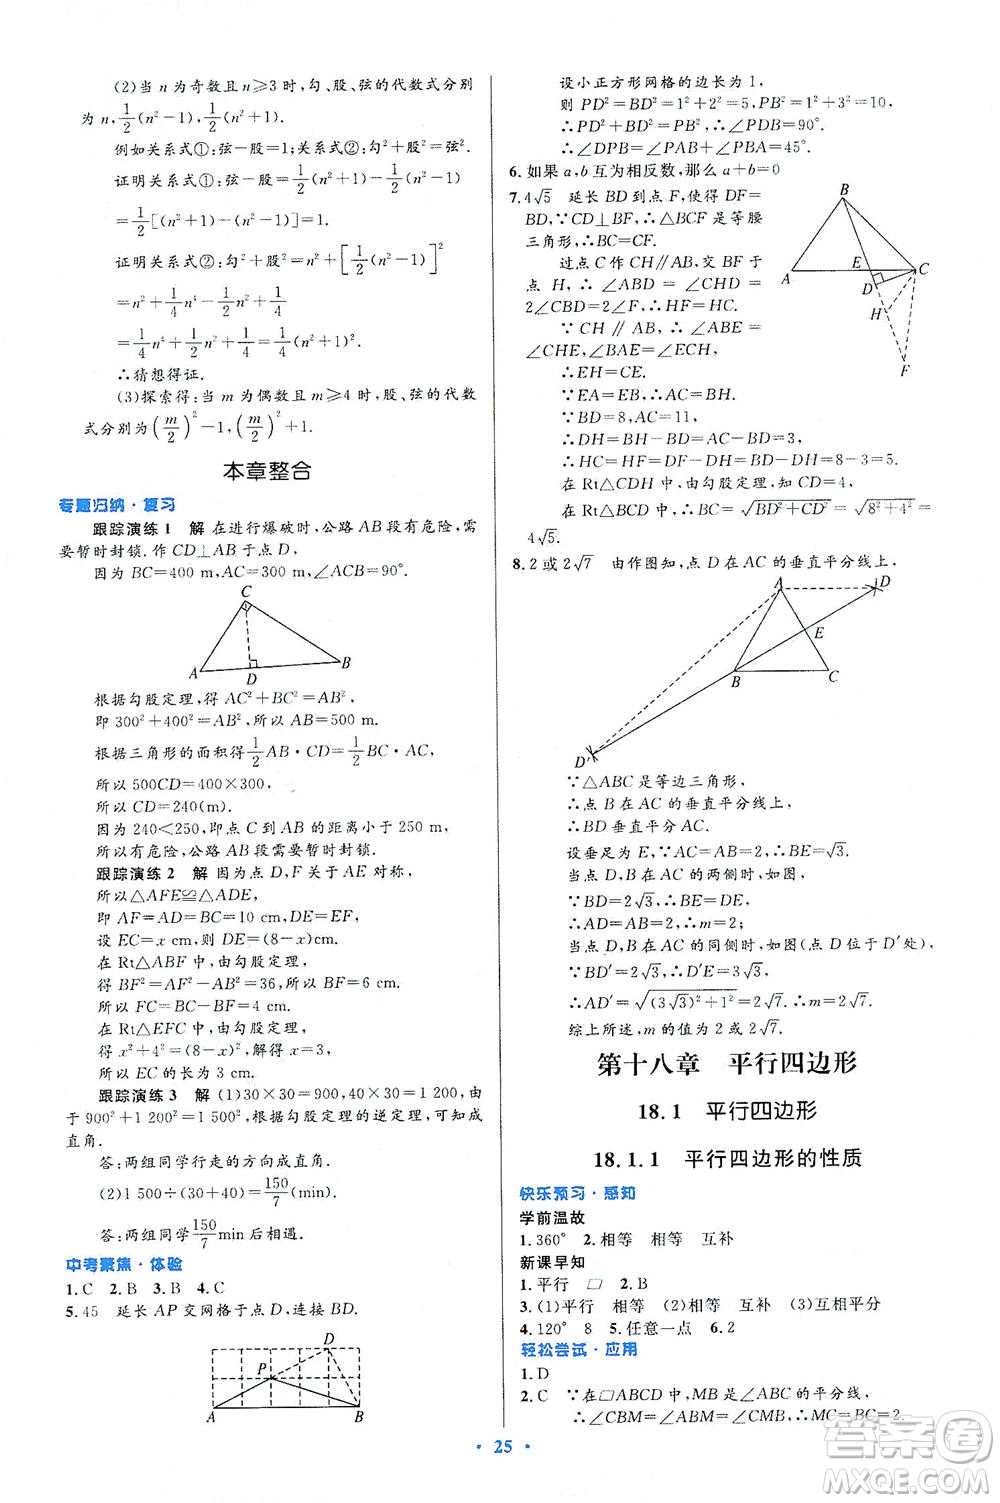 (2)当 n 为奇数且 n≥3 时,勾、股、弦的代数式分别
为 n,1/2(n²-1),1/2(n²+1).
例如关系式①:弦-股=1;关系式②:勾²+股²=弦².
证明关系式①:弦-股=1/2(n²+1)-1/2(n²-1)
=1/2[(n²+1)-(n²-1)]=1
证明关系式②:勾²+股²=n²+[1/2(n²-1)]²
=1/4n⁴-1/4n²+1/4+n²
=1/4n⁴+1/2n²+1/4=1/4(n²+1)².
∴猜想得证.
(3)探索得:当 m 为偶数且 m≥4 时,股、弦的代数
式分别为(m/2)²-1,(m/2)²+1.
本章整合
专题归纳·复习
跟踪演练 1 解 在进行爆破时,公路 AB 段有危险,需
要暂时封锁.作 CD⊥AB 于点 D,
因为 BC=400 m,AC=300 m,∠ACB=90°.
C
A
D
B
根据勾股定理,得 AC²+BC²=AB²,
即 300²+400²=AB²,所以 AB=500 m.
根据三角形的面积得1/2AB·CD=1/2BC·AC,
所以 500CD=400×300.
所以 CD=240(m).
因为 240<250,即点 C 到 AB 的距离小于 250 m,
所以有危险,公路 AB 段需要暂时封锁.
跟踪演练 2 解 因为点 D,F 关于 AE 对称,
所以△AFE≌△ADE,
即 AF=AD=BC=10 cm,DE=EF,
设 EC=x cm,则 DE=(8-x)cm.
在 Rt△ABF 中,由勾股定理,
得 BF²=AF²-AB²=36,所以 BF=6 cm.
所以 FC=BC-BF=4 cm.
在 Rt△EFC 中,由勾股定理,
得 x²+4²=(8-x)²,解得 x=3.
所以 EC 的长为 3 cm.
跟踪演练 3 解 (1)30×30=900,40×30=1 200,由
于 900²+1 200²=1 500²,根据勾股定理的逆定理,可知成
直角.
答:两组同学行走的方向成直角.
(2)1 500÷(30+40)=150/7(min).
答:两组同学150/7min 后相遇.
中考聚焦·体验
1.C 2.B 3.B 4.C
5.45 延长 AP 交网格于点 D,连接 BD.
D
P
A
B
设小正方形网格的边长为 1,
则 PD²=BD²=1²+2²=5,PB²=1²+3²=10,
∴PD²+BD²=PB²,∴∠PDB=90°.
∴∠DPB=∠PAB+∠PBA=45°.
6.如果 a,b 互为相反数,那么 a+b=0
7.4√5 延长 BD 到点 F,使得 DF=
BD,∵CD⊥BF,∴△BCF 是等腰
三角形,∴BC=CF.
过点 C 作 CH∥AB,交 BF 于
点 H,∴∠ABD=∠CHD=
2∠CBD=2∠F,∴HF=HC.
∵CH∥AB,∴∠ABE=
∠CHE,∠BAE=∠ECH,
∴EH=CE.
∵EA=EB,∴AC=BH.
∵BD=8,AC=11,
∴DH=BH-BD=AC-BD=3,
∴HF=HC=DF-DH=BD-DH=8-3=5.
在 Rt△CDH 中,由勾股定理,得 CD=4,
在 Rt△BCD 中,BC=√(BD²+CD²)=√(8²+4²)=
4√5.
B
A
E
C
D
H
F
8.2 或 2√7 由作图知,点 D 在 AC 的垂直平分线上,
A
D
E
B
C
D′
∵△ABC 是等边三角形,
∴点 B 在 AC 的垂直平分线上,
∴BD 垂直平分 AC.
设垂足为 E,∵AC=AB=2,∴BE=√3.
当点 D、B 在 AC 的两侧时,如图,
∵BD=2√3,∴BE=DE=√3,
∴AD=AB=2,∴m=2;
当点 D、B 在 AC 的同侧时,如图(点 D 位于 D′处),
∵BD′=2√3,∴D′E=3√3,
∴AD′=√((3√3)²+1²)=2√7,∴m=2√7.
综上所述,m 的值为 2 或 2√7.
第十八章 平行四边形
18.1 平行四边形
18.1.1 平行四边形的性质
快乐预习·感知
学前温故
1.360° 2.相等 相等 互补 互补
新课早知
1.平行 ▱ 2.B
3.(1)平行 相等 (2)相等 互补 (3)互相平分
4.120° 8 5.任意一点 6.2
轻松尝试·应用
1.D
2.C ∵在▱ABCD 中,MB 是∠ABC 的平分线,
∴∠CBM=∠ABM=∠CMB,∴MC=BC=2.
· 25 ·
答案圈
MXQE.COM